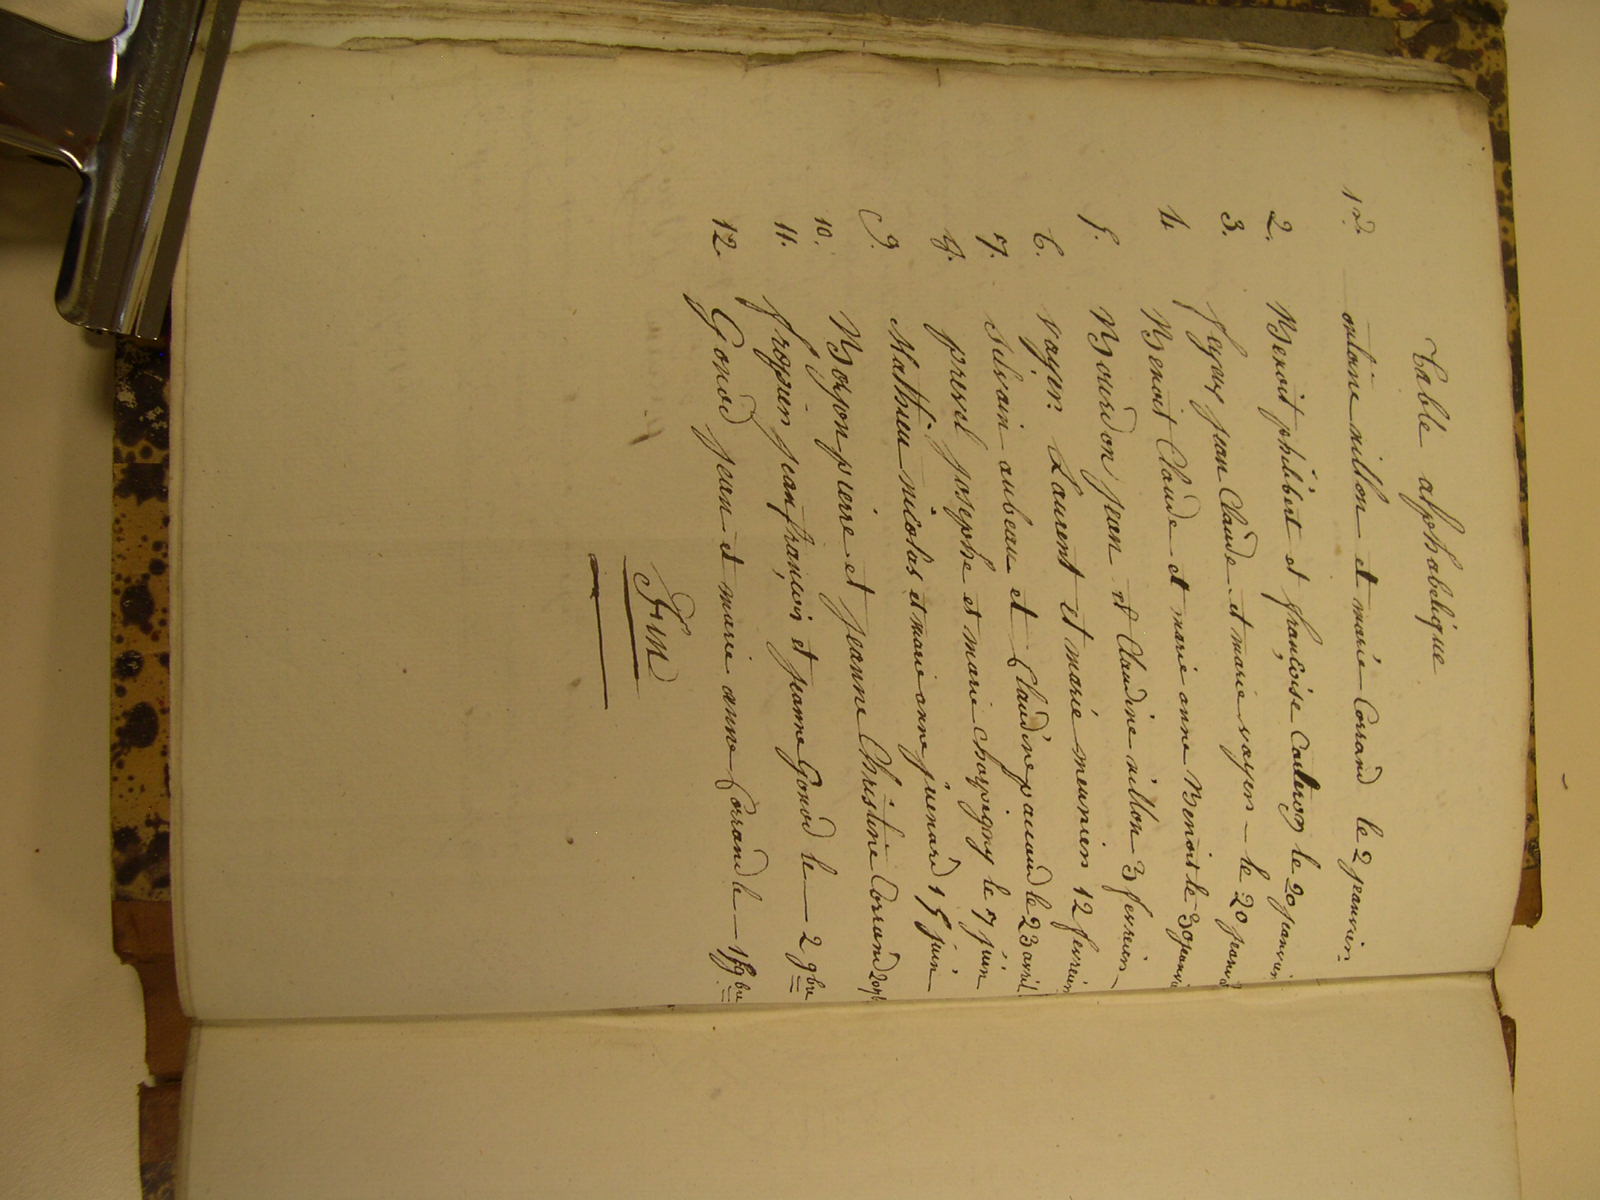 Table alphabetique
1er. antoine sillon et marie Corrand le 2 jeanvier
2. Benoit philibert et françoise le 20 janvier
3. jean Claude et marie vayer le 20
4. Benoit Claude et marie anne Benoit le 30
5. Bourdon jean et Claudine sillon 3 fevrier
6. vayer Laurent et marie meunier 12 fevrier
7. silvain aubeau et Claudine pauaud le 23 avril
8. prevel josephe et marie Charpigny le 7 juin
9. Mathieu nicolas et marie anne juenard 15 juin
10. Boyon pierre et jeanne Christine Corrand
11. jean françois et jeanne Gonod le 2 9bre
12. Gonod jean et marie anne Corrand le 9bre
Fin